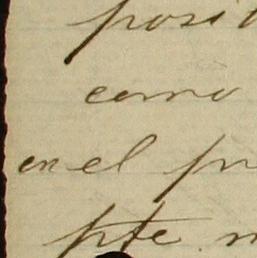 posit
como
en el pr
pte n